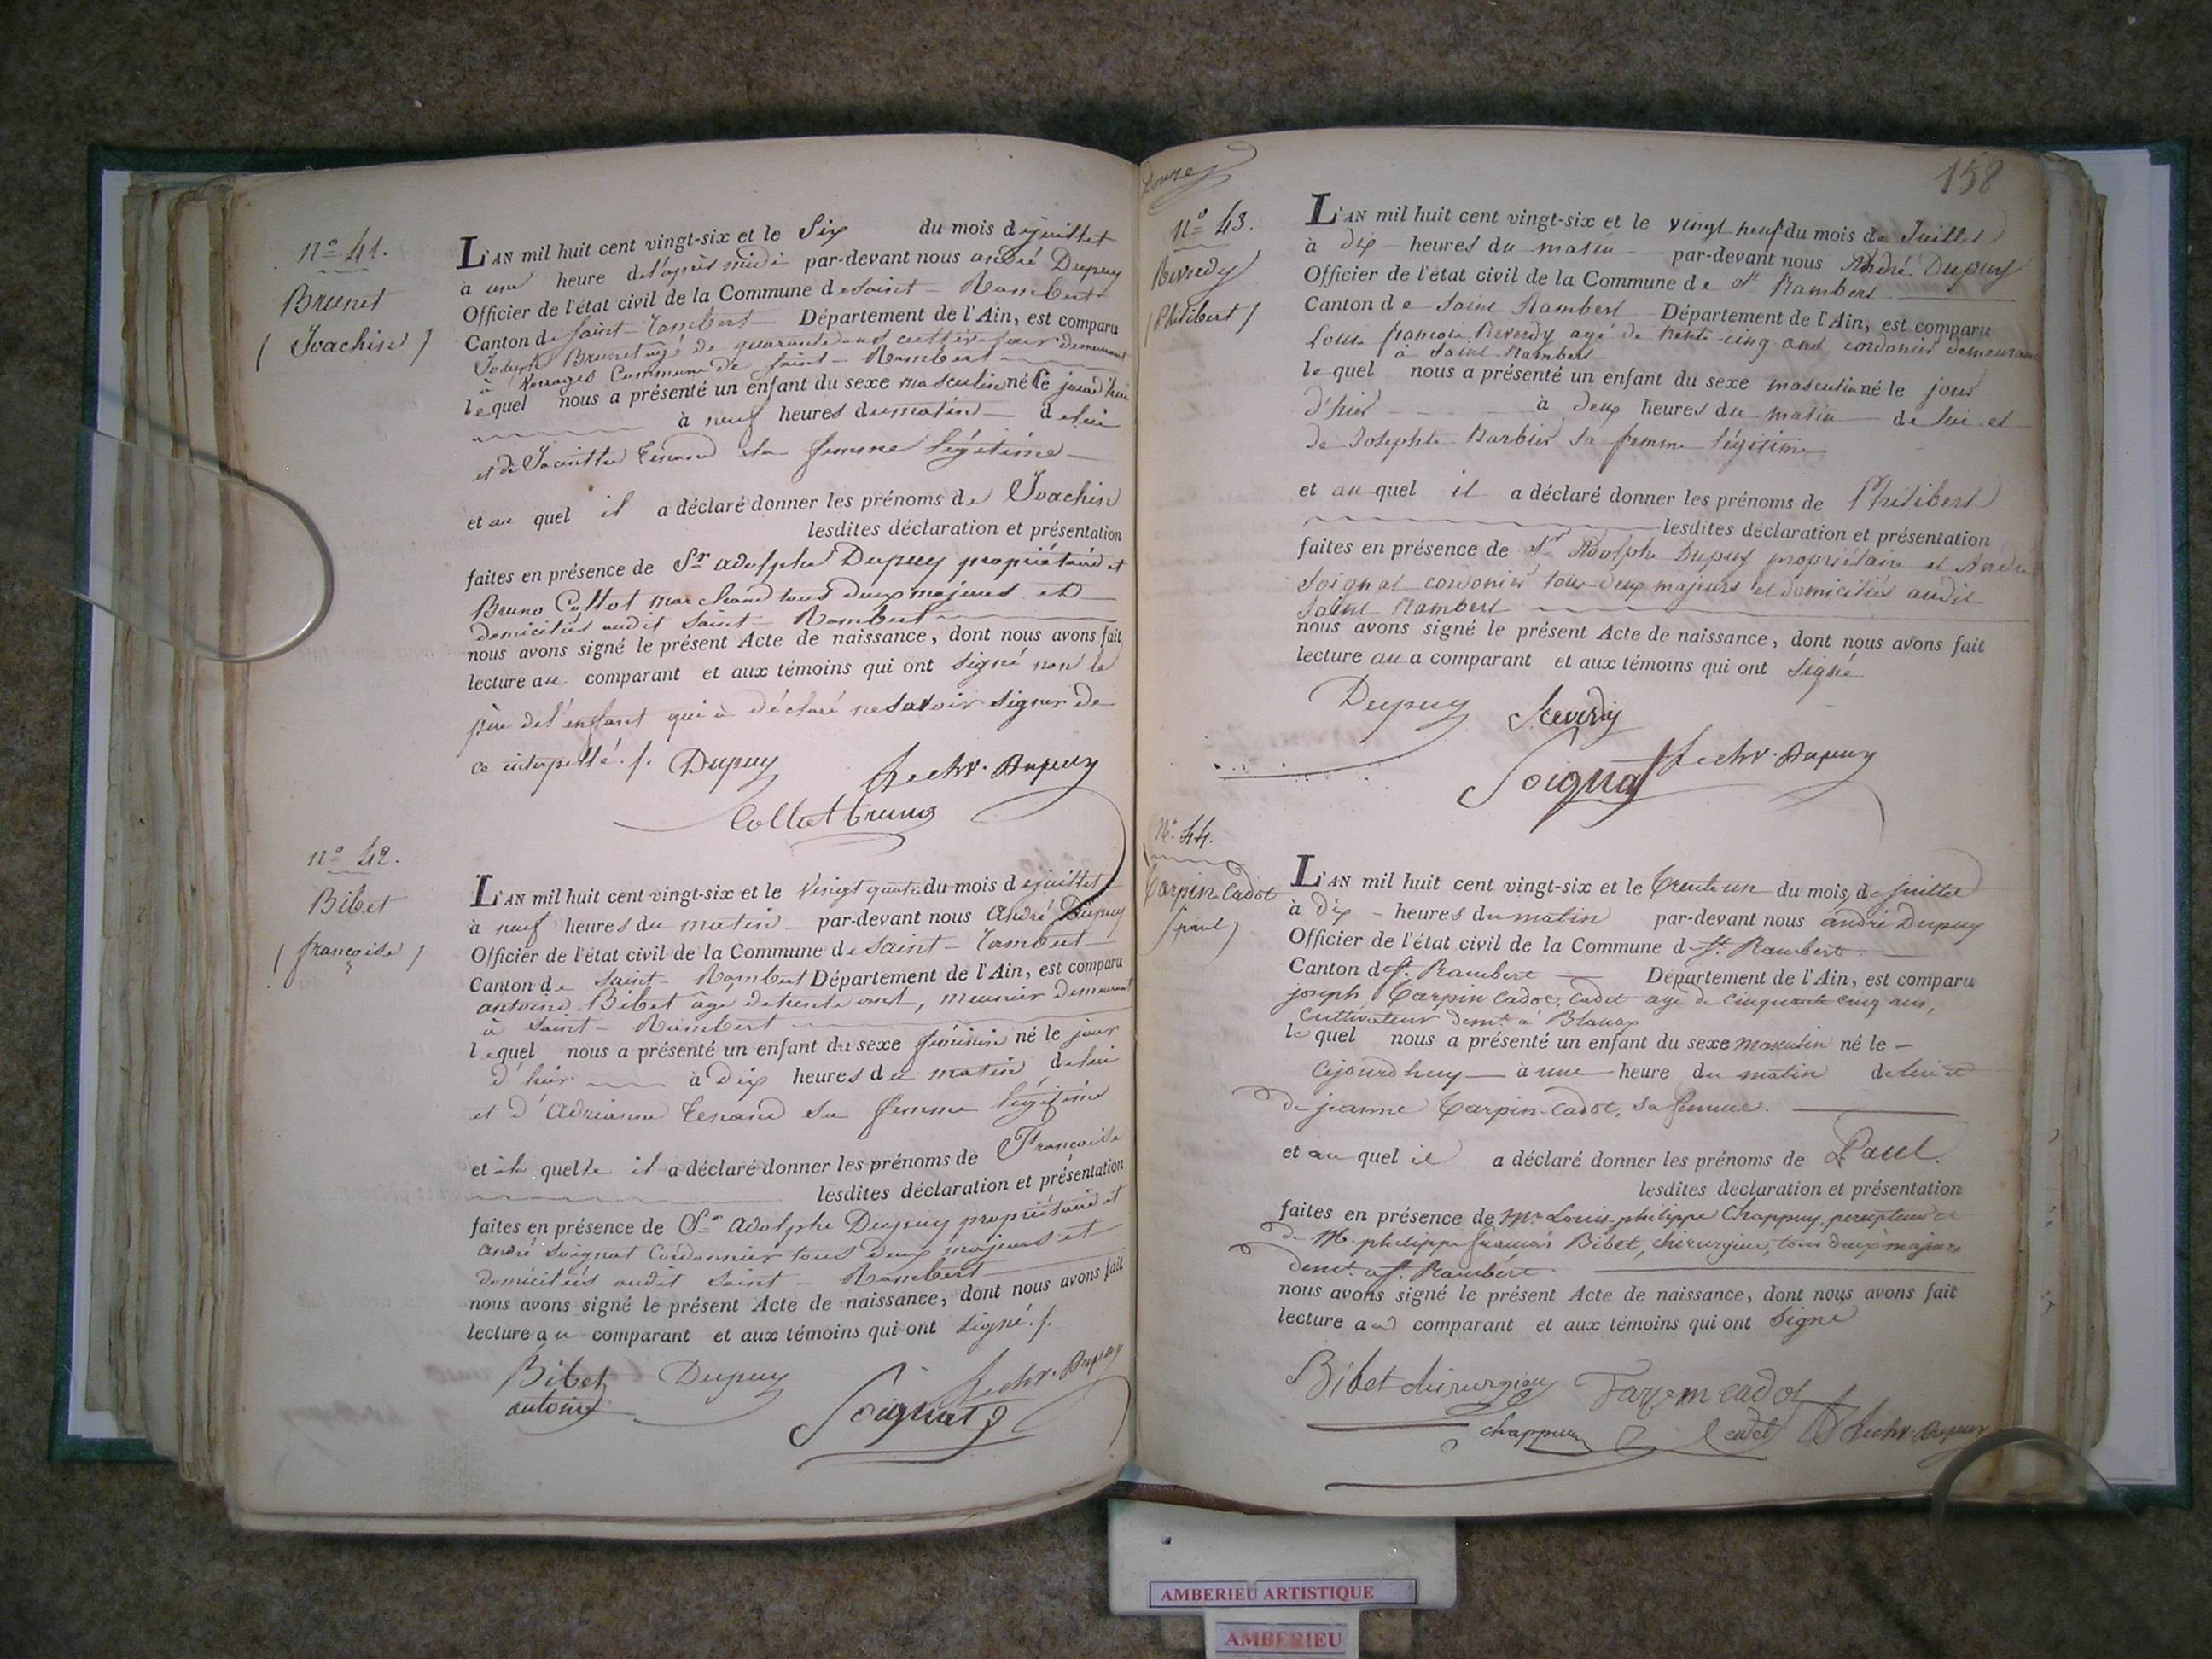 n° 41.
Brunet
( Joachin )
L'AN mil huit cent vingt-six et le Six du mois de juillet
à une heure de l'après midi par-devant nous andré Dupuy
Officier de l'état civil de la Commune de saint - Rambert
Canton de saint - Rambert Département de l'Ain, est comparu
Joseph Brunet agé de quarante ans cultivateur demeurant
à Commune de saint - Rambert
lequel nous a présenté un enfant du sexe masculin né le jourd'hui
à neuf heures du matin de lui
et de Jacinthe Tenand sa femme légitime
et au quel il a déclaré donner les prénoms de Joachin
lesdites déclaration et présentation
faites en présence de Sr adolphe Dupuy propriétaire et
Bruno Collot marchand tous deux majeurs et
domiciliés audit saint - Rambert
nous avons signé le présent Acte de naissance, dont nous avons fait
lecture au comparant et aux témoins qui ont signé non le
père de l'enfant qui a déclaré ne savoir signer de
ce interpellé ./. Dupuy Dupuy
Collot bruno
n° 42.
Bibet
( françoise )
L'AN mil huit cent vingt-six et le Vingt quatre du mois de juillet
à neuf heures du matin par-devant nous André Dupuy
Officier de l'état civil de la Commune de saint - Rambert
Canton de saint - Rambert Département de l'Ain, est comparu
antoine Bibet agé de trente ans, meunier demeurant
à saint - Rambert
lequel nous a présenté un enfant du sexe féminin né le jour
d'hier à dix heures du matin de lui
et d'Adrianne Tenand sa femme légitime
et à la quelle il a déclaré donner les prénoms de Françoise
lesdites déclaration et présentation
faites en présence de Sr adolphe Dupuy propriétaire et
andré soignat Cordonnier tous deux majeurs et
domiciliés audit saint - Rambert
nous avons signé le présent Acte de naissance, dont nous avons fait
lecture au comparant et aux témoins qui ont signé ./.
Bibet Dupuy Dupuy
antoine Soignat
158
n° 43.
Reverdy
( Philibert )
L'AN mil huit cent vingt-six et le vingt neuf du mois de Juillet
à dix heures du matin par-devant nous André Dupuy
Officier de l'état civil de la Commune de St Rambert
Canton de Saint Rambert Département de l'Ain, est comparu
Louis françois Reverdy agé de trente cinq ans, cordonier demeurant
à Saint Rambert
le quel nous a présenté un enfant du sexe masculin né le jour
d'hier à deux heures du matin de lui et
de Josephte Barbier sa femme légitime
et au quel il a déclaré donner les prénoms de Philibert
lesdites déclaration et présentation
faites en présence de Sr Adolphe Dupuy propriétaire et André
Soignat cordonier tous deux majeurs et domiciliés audit
Saint Rambert
nous avons signé le présent Acte de naissance, dont nous avons fait
lecture au a comparant et aux témoins qui ont signé
Dupuy Reverdy
Soignat Dupuy
N° 44.
Tarpin Cadot
( paul )
L'AN mil huit cent vingt-six et le trente un du mois de juillet
à dix heures du matin par-devant nous andré Dupuy
Officier de l'état civil de la Commune d St. Rambert
Canton d St. Rambert Département de l'Ain, est comparu
joseph Tarpin Cadot, cadet agé de cinquante cinq ans,
cultivateur demt. à Blanas
le quel nous a présenté un enfant du sexe masculin né le
ajourdhuy à une heure du matin de lui et
de jeanne Tarpin-Cadot, sa femme.
et au quel il a déclaré donner les prénoms de Paul.
lesdites déclaration et présentation
faites en présence de Mr. Louis-philippe Chappuy, percepteur et
de Mr philippe françois Bibet, chirurgien, tous deux majeurs
demt. à St. Rambert.
nous avons signé le présent Acte de naissance, dont nous avons fait
lecture au comparant et aux témoins qui ont signé
Bibet chirurgien Tarpin cadot
Chappuy cadet Dupuy
AMBERIEU ARTISTIQUE
AMBERIEU